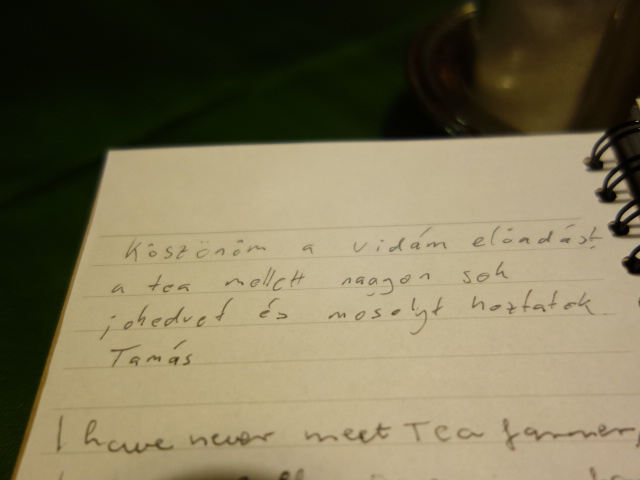 Köszönöm a vidám előadást
a tea mellett nagyon sok
jókedvet és mosolyt hoztatok.
Tamás
I have never meet Tea farmer,